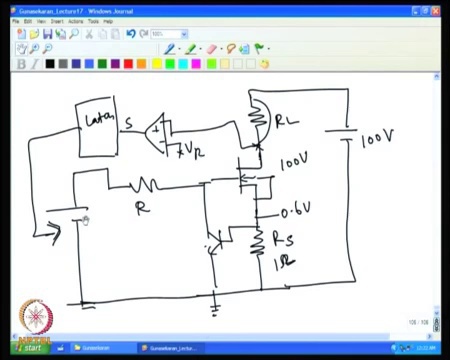 Gunasekaran_Lecture17 - Windows Journal
File Edit View Insert Actions Tools Help
100%
B I
Latch
S
+
VR
RL
100V
100V
R
0.6V
RS
1Ω
NPTEL
108 / 108
start
Gunasekaran
Gunasekaran_Lectur...